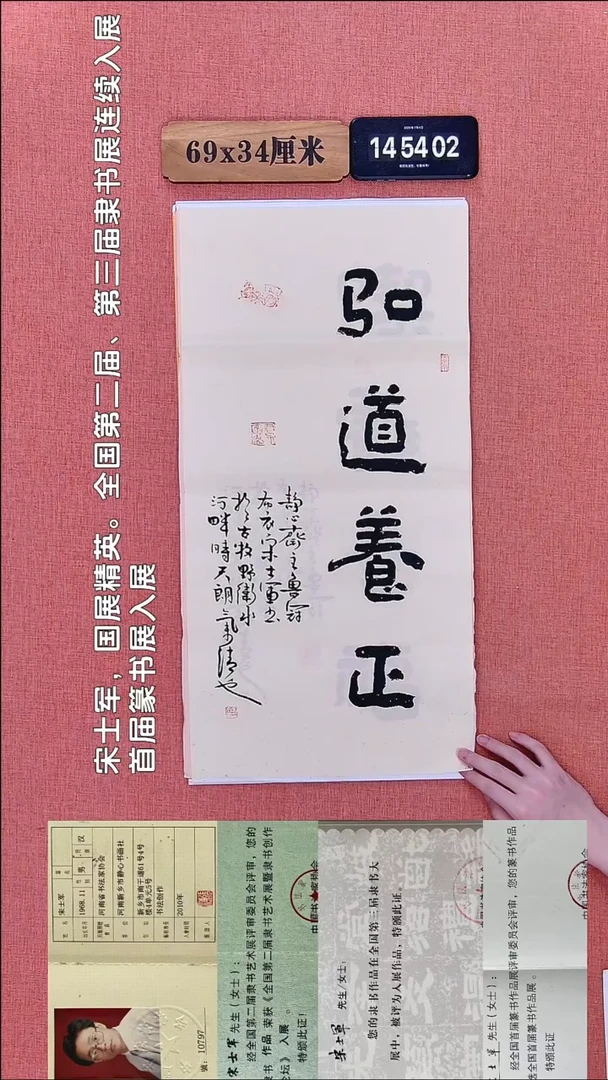 宋士军，国展精英。全国第二届、第三届隶书展连续入展
首届篆书展入展
69x34厘米
14 54 02
弘
道
養
正
静心齋主魯冠
布衣宋士軍書
於古牧野衛水
河畔時天朗氣清也
宋士军
1968.11
男
汉
河南省书法家协会
河南新乡市静心书画社
新乡市南干道61号4号
楼4单元5号
书法创作
2010年
號：10797
宋士军 先生（女士）：
经全国第二届隶书艺术展评审委员会评审，您的
隶书 作品 荣获《全国第二届隶书艺术展暨隶书创作
论坛》入展 。
特颁此证！
宋士军 先生/女士：
您的隶书作品在全国第三届隶书大
展中，被评为入展作品，特颁此证。
士军 先生（女士）：
经全国首届篆书作品展评审委员会评审，您的篆书作品
全国首届篆书作品展 。
特颁此证